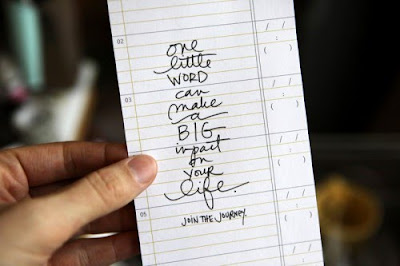 02
one
little
WORD
can
03
make
a
BIG
impact
on
your
life.
05
JOIN THE JOURNEY